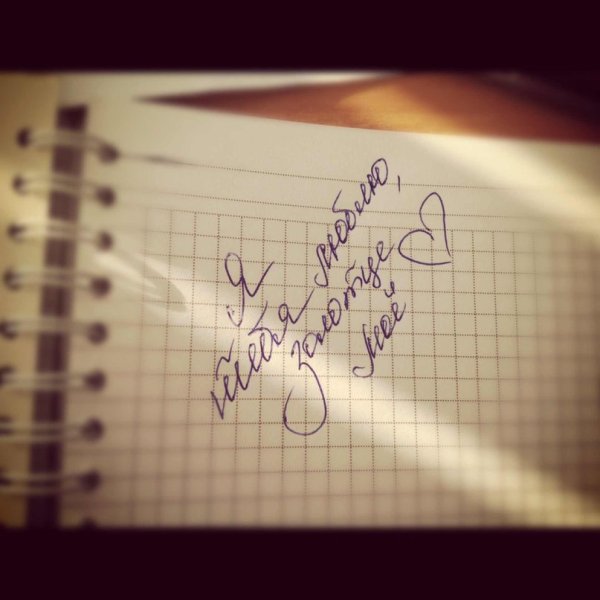 Я
тебя люблю,
золотце
моё